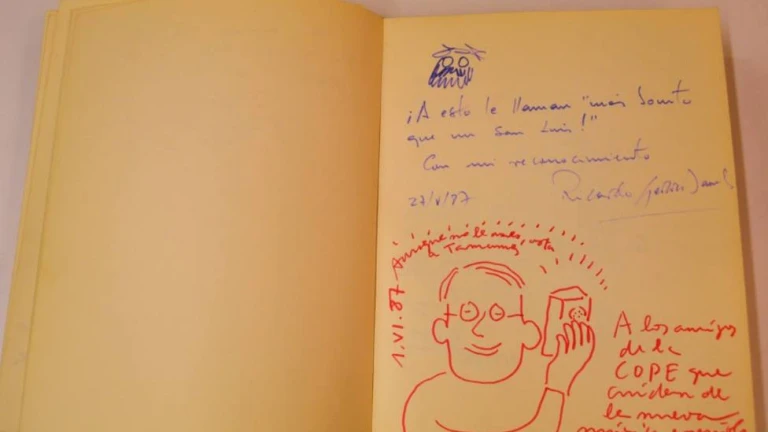 ¡A esto le llaman "más bonito
que un san Luis!"
Con mi reconocimiento
27/V/87
Ricardo
1.VI.87 Aunque no le votes, vota
a Tamames
A los amigos
de la
COPE que
cuidan de
la nueva
música española